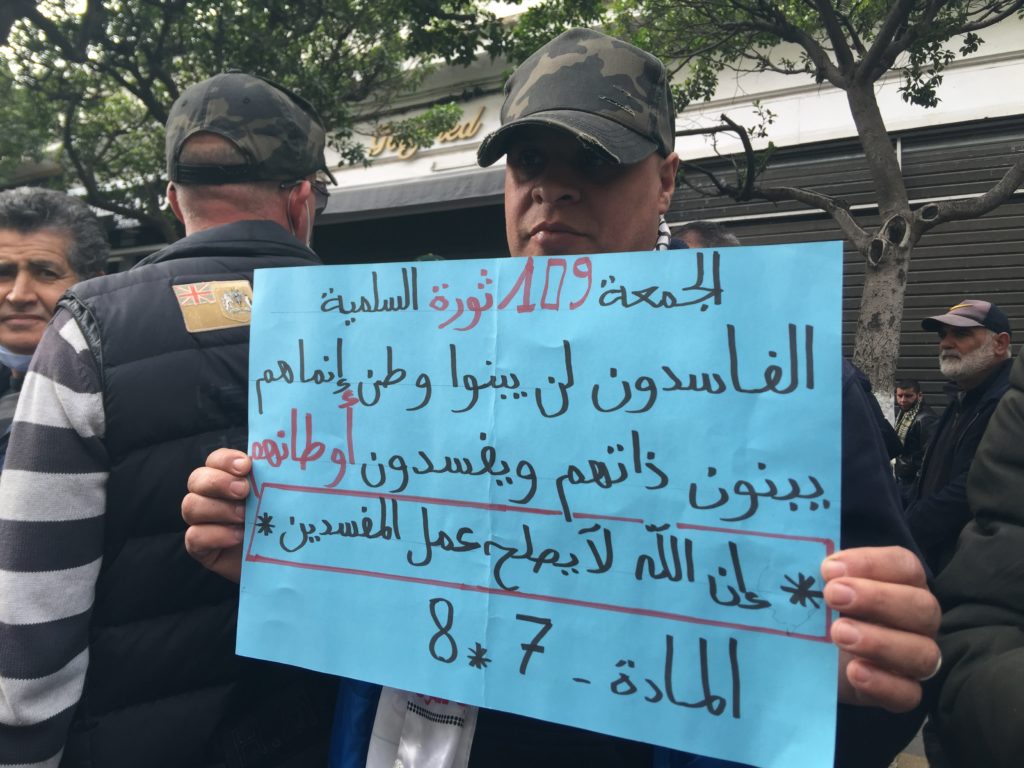 الجمعة 109 ثورة السلمية
الفاسدون لن يبنوا وطن إنماهم
يبنون ذاتهم ويفسدون أوطانهم
* إن الله لا يصلح عمل المفسدين *
المادة - 7 * 8